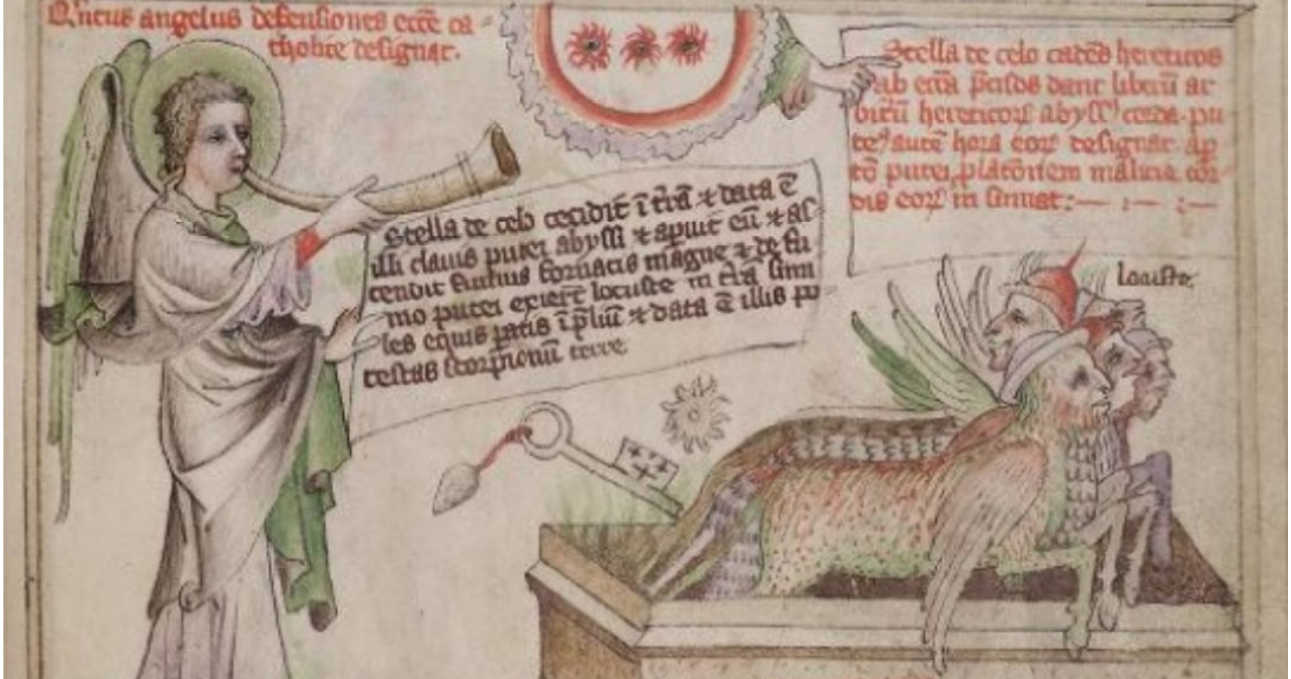 Qͥntus angelus defensiones ecc̄e ca⸗
tholice designat.
Stella de celo cadēs hereticos
ab ecc̄a p̄cisos dant liberū ar
bitriū hereticoꝝ abyssꝰ corda. pu
teꝰ autē hora eoꝝ designat ap̄
tō putei platōnem malicia cor⸗
dis eoꝝ in sinuat :— : — : —
Stella de celo cecidit ī t̄rā ⁊ data ē
illi clauis putei abyssi ⁊ aꝑuit eū ⁊ as⸗
cendit fumus fornacis magne ⁊ de fu
mo putei exier̄t locuste in t̄rā simi
les equis ꝑatis ī p̄liū ⁊ data ē illis po
testas scorpionū terre
locuste.